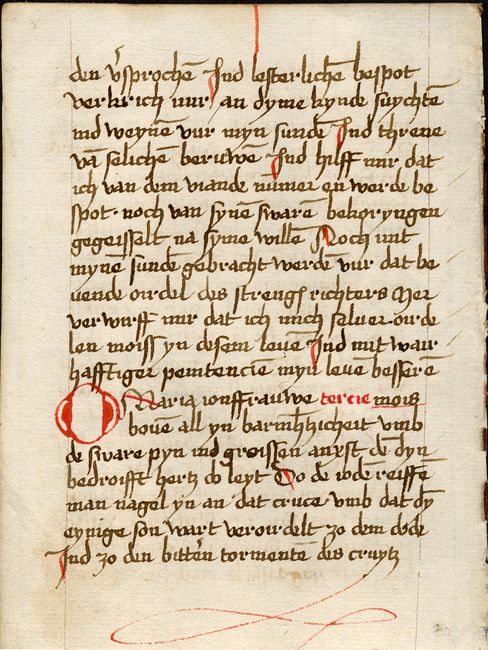 den v'sprochē Ind lesterlichē bespot
verkrich mir an dyme kynde suychtē
ind weynē vur myn sundē Ind threne
vā selichē beruwē Ind hilff mir dat
ich van dem viande nūmer en werde be
spot · noch van synē swarē bekoryngen
gegeisselt na syme willē Noch mit
mynē sundē gebracht werdē vur dat be
uende oirdel des streng richters Mer
verwirff mir dat ich mich seluer oirde
len moiss yn desem leuē Ind mit wair
hafftiger penitencie myn leuē besserē
O Maria ionffrauwe tercie mois
bouē all yn barmh'tzicheit vmb
de sware pyn ind groissen anxst dē dyn
bedroifft hertz do leyt Do de iodē reiffē
man nagel yn an dat cruce vmb dat dȳ
eynige son wart veroirdelt zo dem dode
Ind zo den bittern tormentē des cruytz